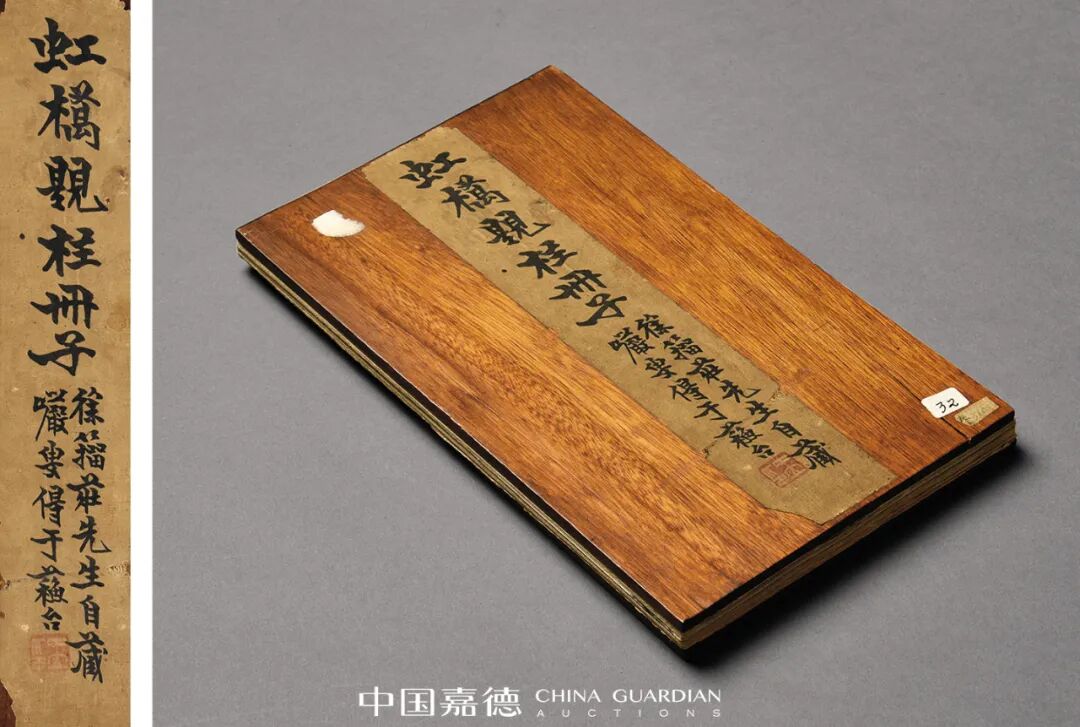 虹橋題柱冊子
徐籀莊先生自藏
巗叟得于蘇台
虹橋題柱冊子
徐籀莊先生自藏
巗叟得于蘇台
32
中国嘉德 CHINA GUARDIAN
AUCTIONS